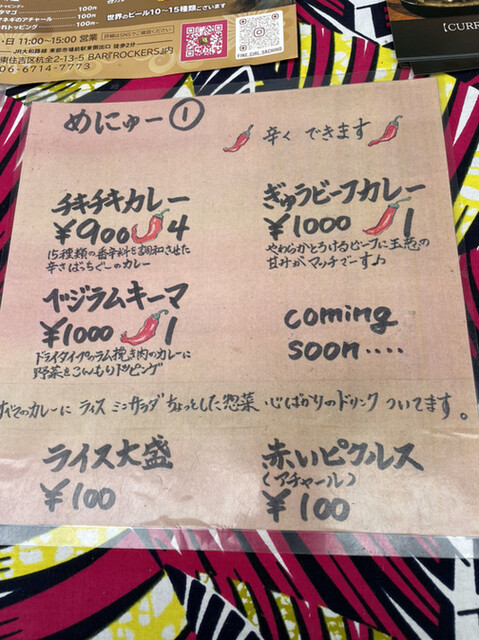 タマゴ 100円
タマネギのアチャール 100円
100円
世界のビール10~15種類ございます
日 11:00~15:00 営業
詳細はSNSでご確認ください
JR大和路線 東部市場前駅東側出口 徒歩2分
東住吉区杭全2-13-5 BAR「ROCKERS」内
06-6714-7773
【CURR
めにゅー①
辛く できます
チキチキカレー
¥900 4
15種類の香辛料を調和させた
辛さばっちぐーのカレー
ぎゅうビーフカレー
¥1000 1
やわらかとろけるビーフに玉葱の
甘みがマッチでーす♪
ベジラムキーマ
¥1000 1
ドライタイプのラム挽き肉のカレーに
野菜をこんもりトッピング
coming
soon....
すべてのカレーに ライス ミニサラダ ちょっとした惣菜 心ばかりのドリンク ついてます。
ライス大盛
¥100
赤いピクルス
(アチャール)
¥100